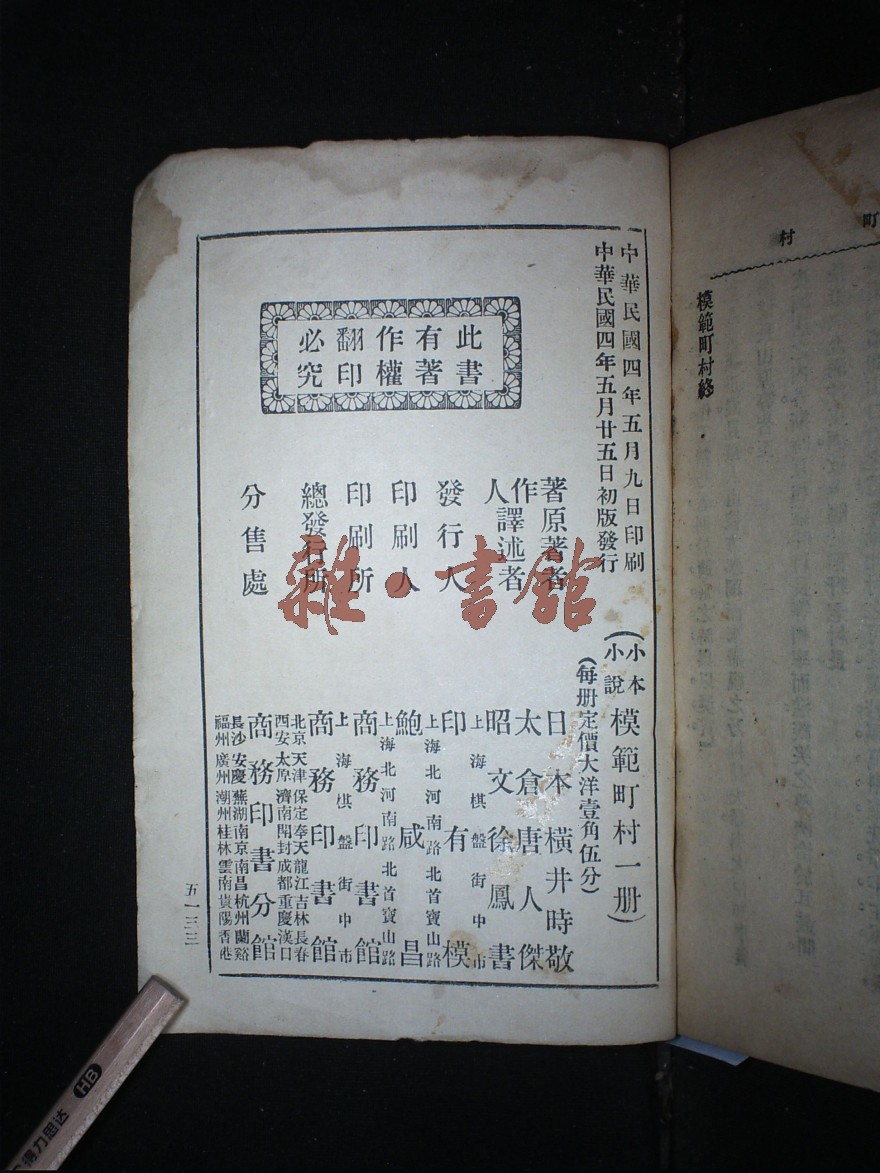 中華民國四年五月九日印刷
中華民國四年五月廿五日初版發行
(小本小說模範町村一册)
(每册定價大洋壹角伍分)
此書
有著
作權
翻印
必究
著作人
原著者 日本橫井時敬
譯述者 太倉唐人傑
昭文徐鳳書
發行人 印有模
上海棋盤街中市
印刷人 鮑咸昌
上海北河南路北首寶山路
印刷所 商務印書館
上海北河南路北首寶山路
總發行所 商務印書館
上海棋盤街中市
分售處 商務印書分館
北京天津保定奉天龍江吉林長春
西安太原濟南開封成都重慶漢口
長沙安慶蕪湖南京南昌杭州蘭谿
福州廣州潮州桂林雲南貴陽香港
五一三三
町村
模範町村終
雜·書館
得力思达 HB